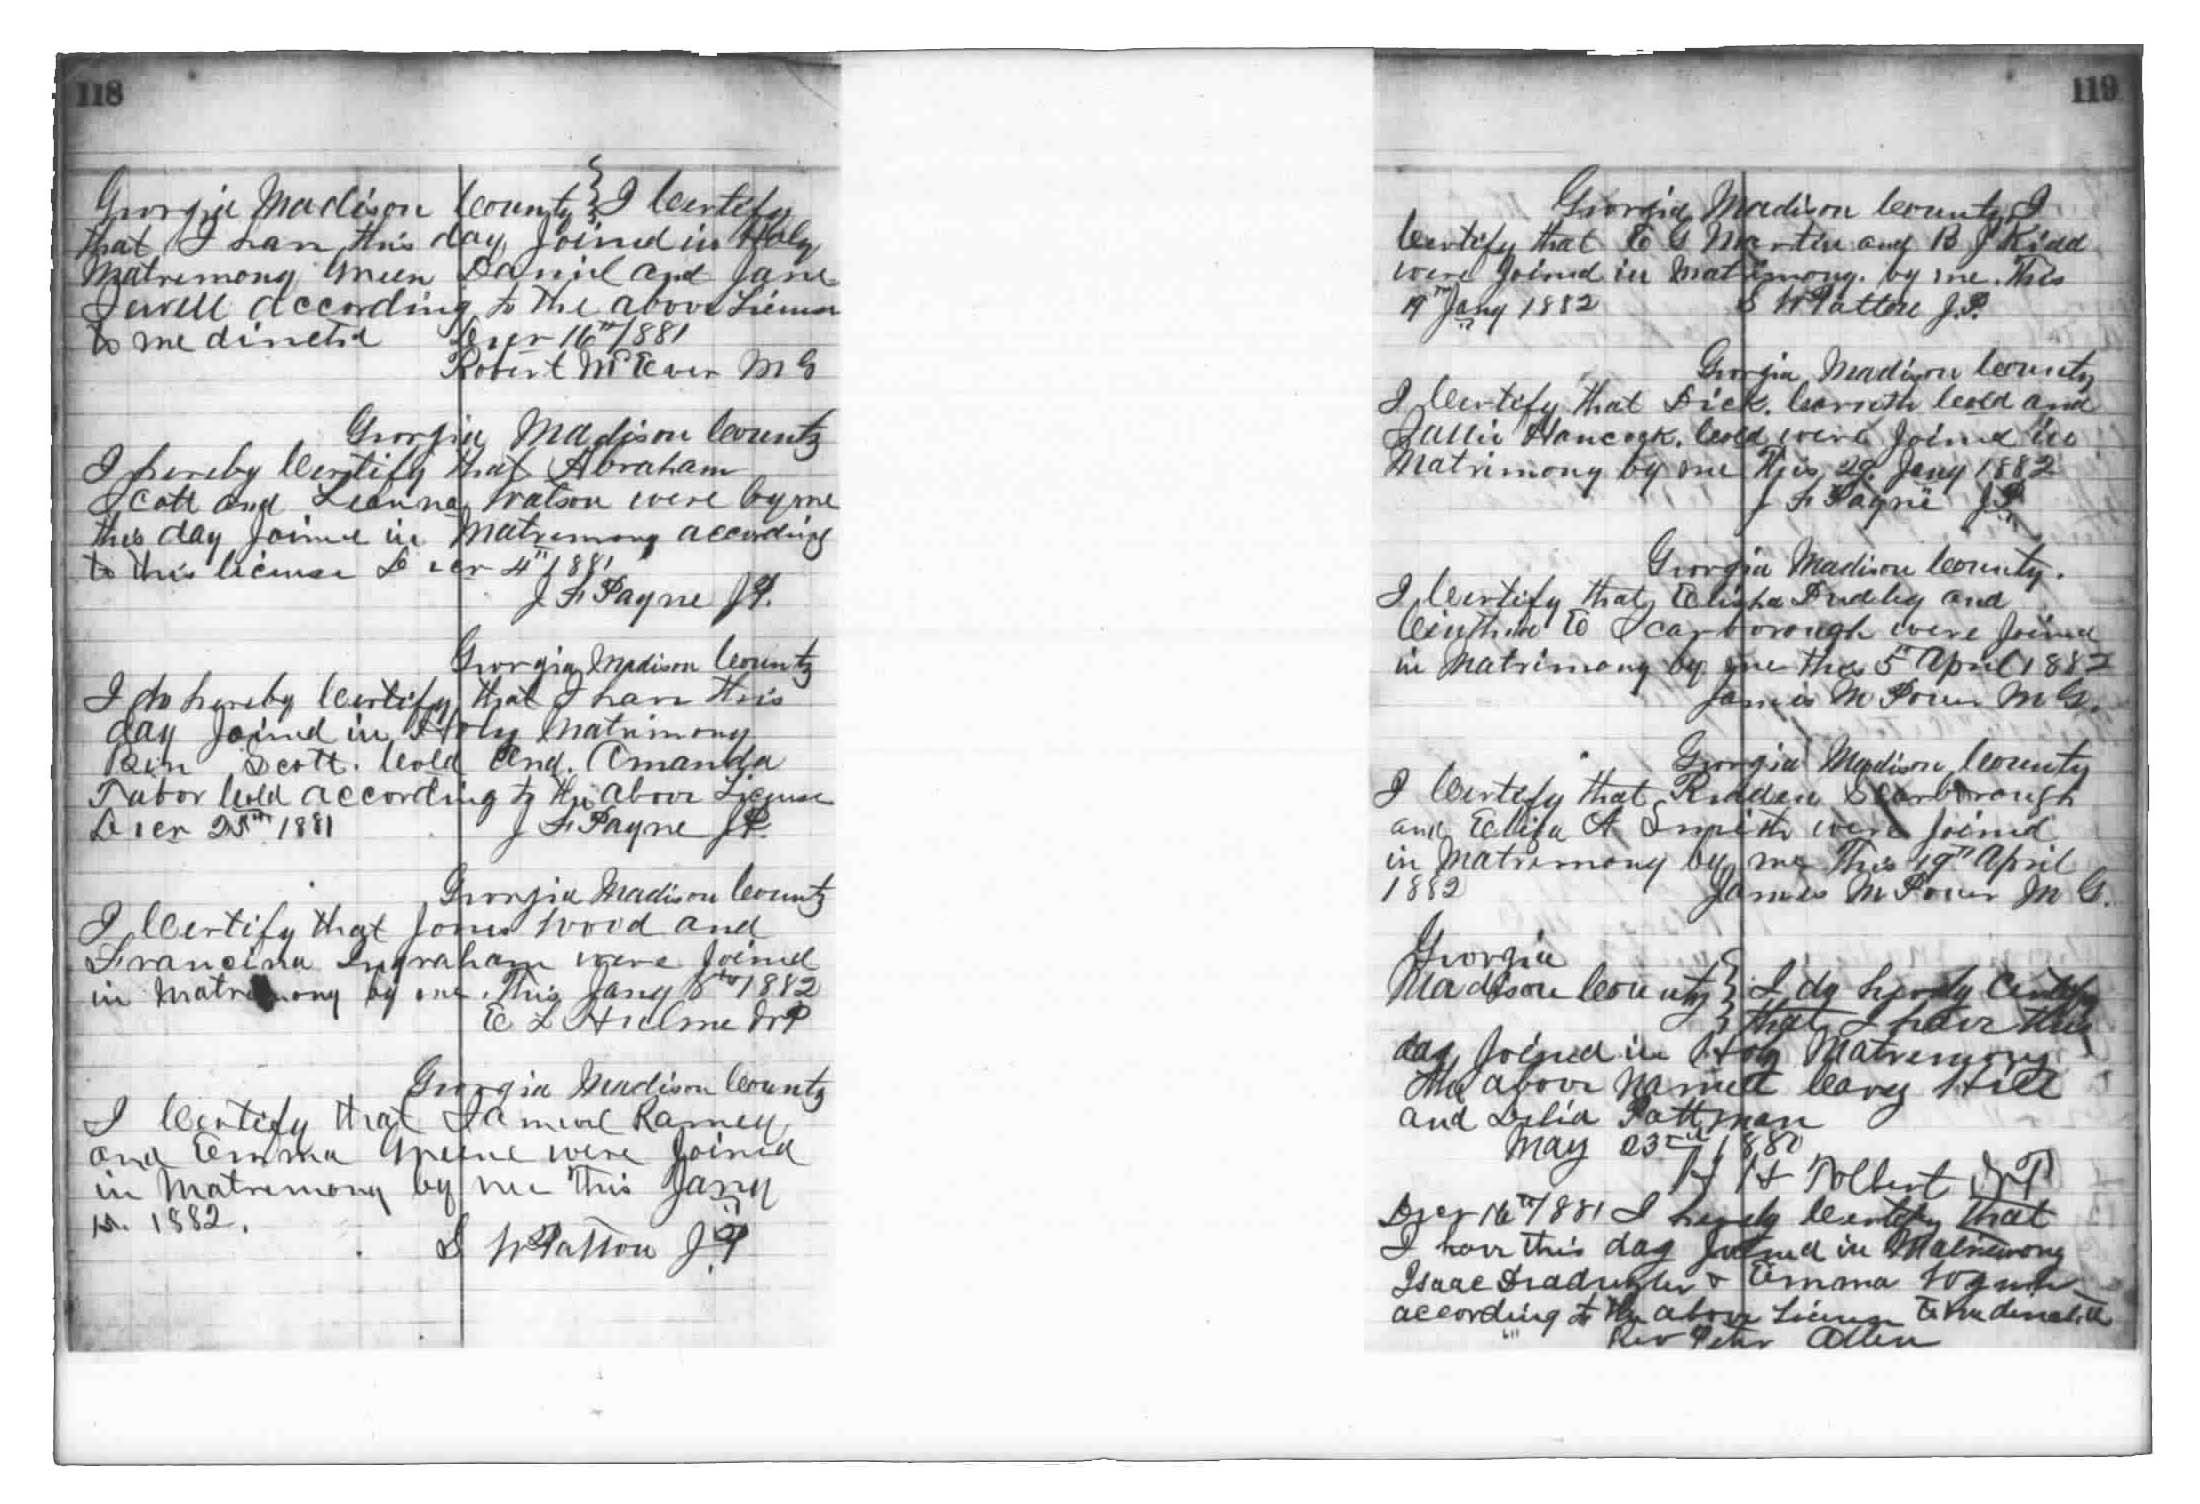 118
Georgia Madison County } I Certify
that I have this day Joined in Holy
Matremony Green Daniel and Jane
Jewell according to the above License
to me directed Decr 16th 1881
Robert McEver M G
Georgia Madison County
I hereby Certify that Abraham
Scott and Leanna Watson were by me
this day Joined in Matremony according
to this license Decr 4th 1881
J F Payne J.P.
Georgia Madison County
I do hereby Certify that I have this
day Joined in Holy Matrimony
Ben Scott. Cold and. Amanda
Tabor Cold according to the above License
Decr 25th 1881 J F Payne J.P.
Georgia Madison County
I Certify that Jones Wood and
Francina Ingraham were Joined
in Matremony by me. This Jany 8th 1882
E L Hulme N P
Georgia Madison County
I Certify that Samuel Ramey
and Emma Greene were Joined
in Matremony by me This Jany
1882.
S W Patton J.P
119
Georgia Madison County I
Certify that E G Martin and B J Kidd
were Joined in Matrimony. by me. This
19th Jany 1882 S W Patton J.P.
Georgia Madison County
I Certify that Dick. Cold and
Sallie Hancock. Cold were Joined in
Matrimony by me This 29. Jany 1882
J F Payne J.P
Georgia Madison County.
I Certify that Elisha Dudley and
E Scarborough were Joined
in Matrimony by me this 5th April 1882
James M Power M G.
Georgia Madison County
I Certify that Redden Scarborough
and Eliza A Smith were Joined
in Matremony by me This 19th April
1882 James M Power M G.
Georgia
Madison County } I do hereby Certify
that I have this
day Joined in Holy Matremony
the above named Carey Hill
and Delia Pattman
May 23rd 1880
H H Tolbert N P
Decr 16th 1881 I hereby Certify that
I have this day Joined in Matrimony
Isaac &amp; Emma
according to the above License to me directed
Rev Peter Allen